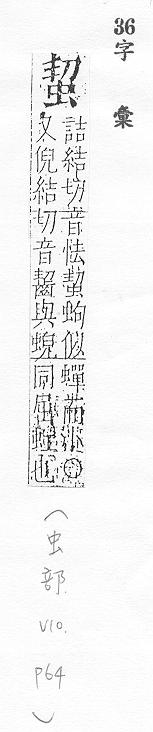 36
字彙
蛪
詰結切音怯蛪蚼似蟬而小○
又倪結切音齧與蜺同屈也
(虫部. V10. P64)